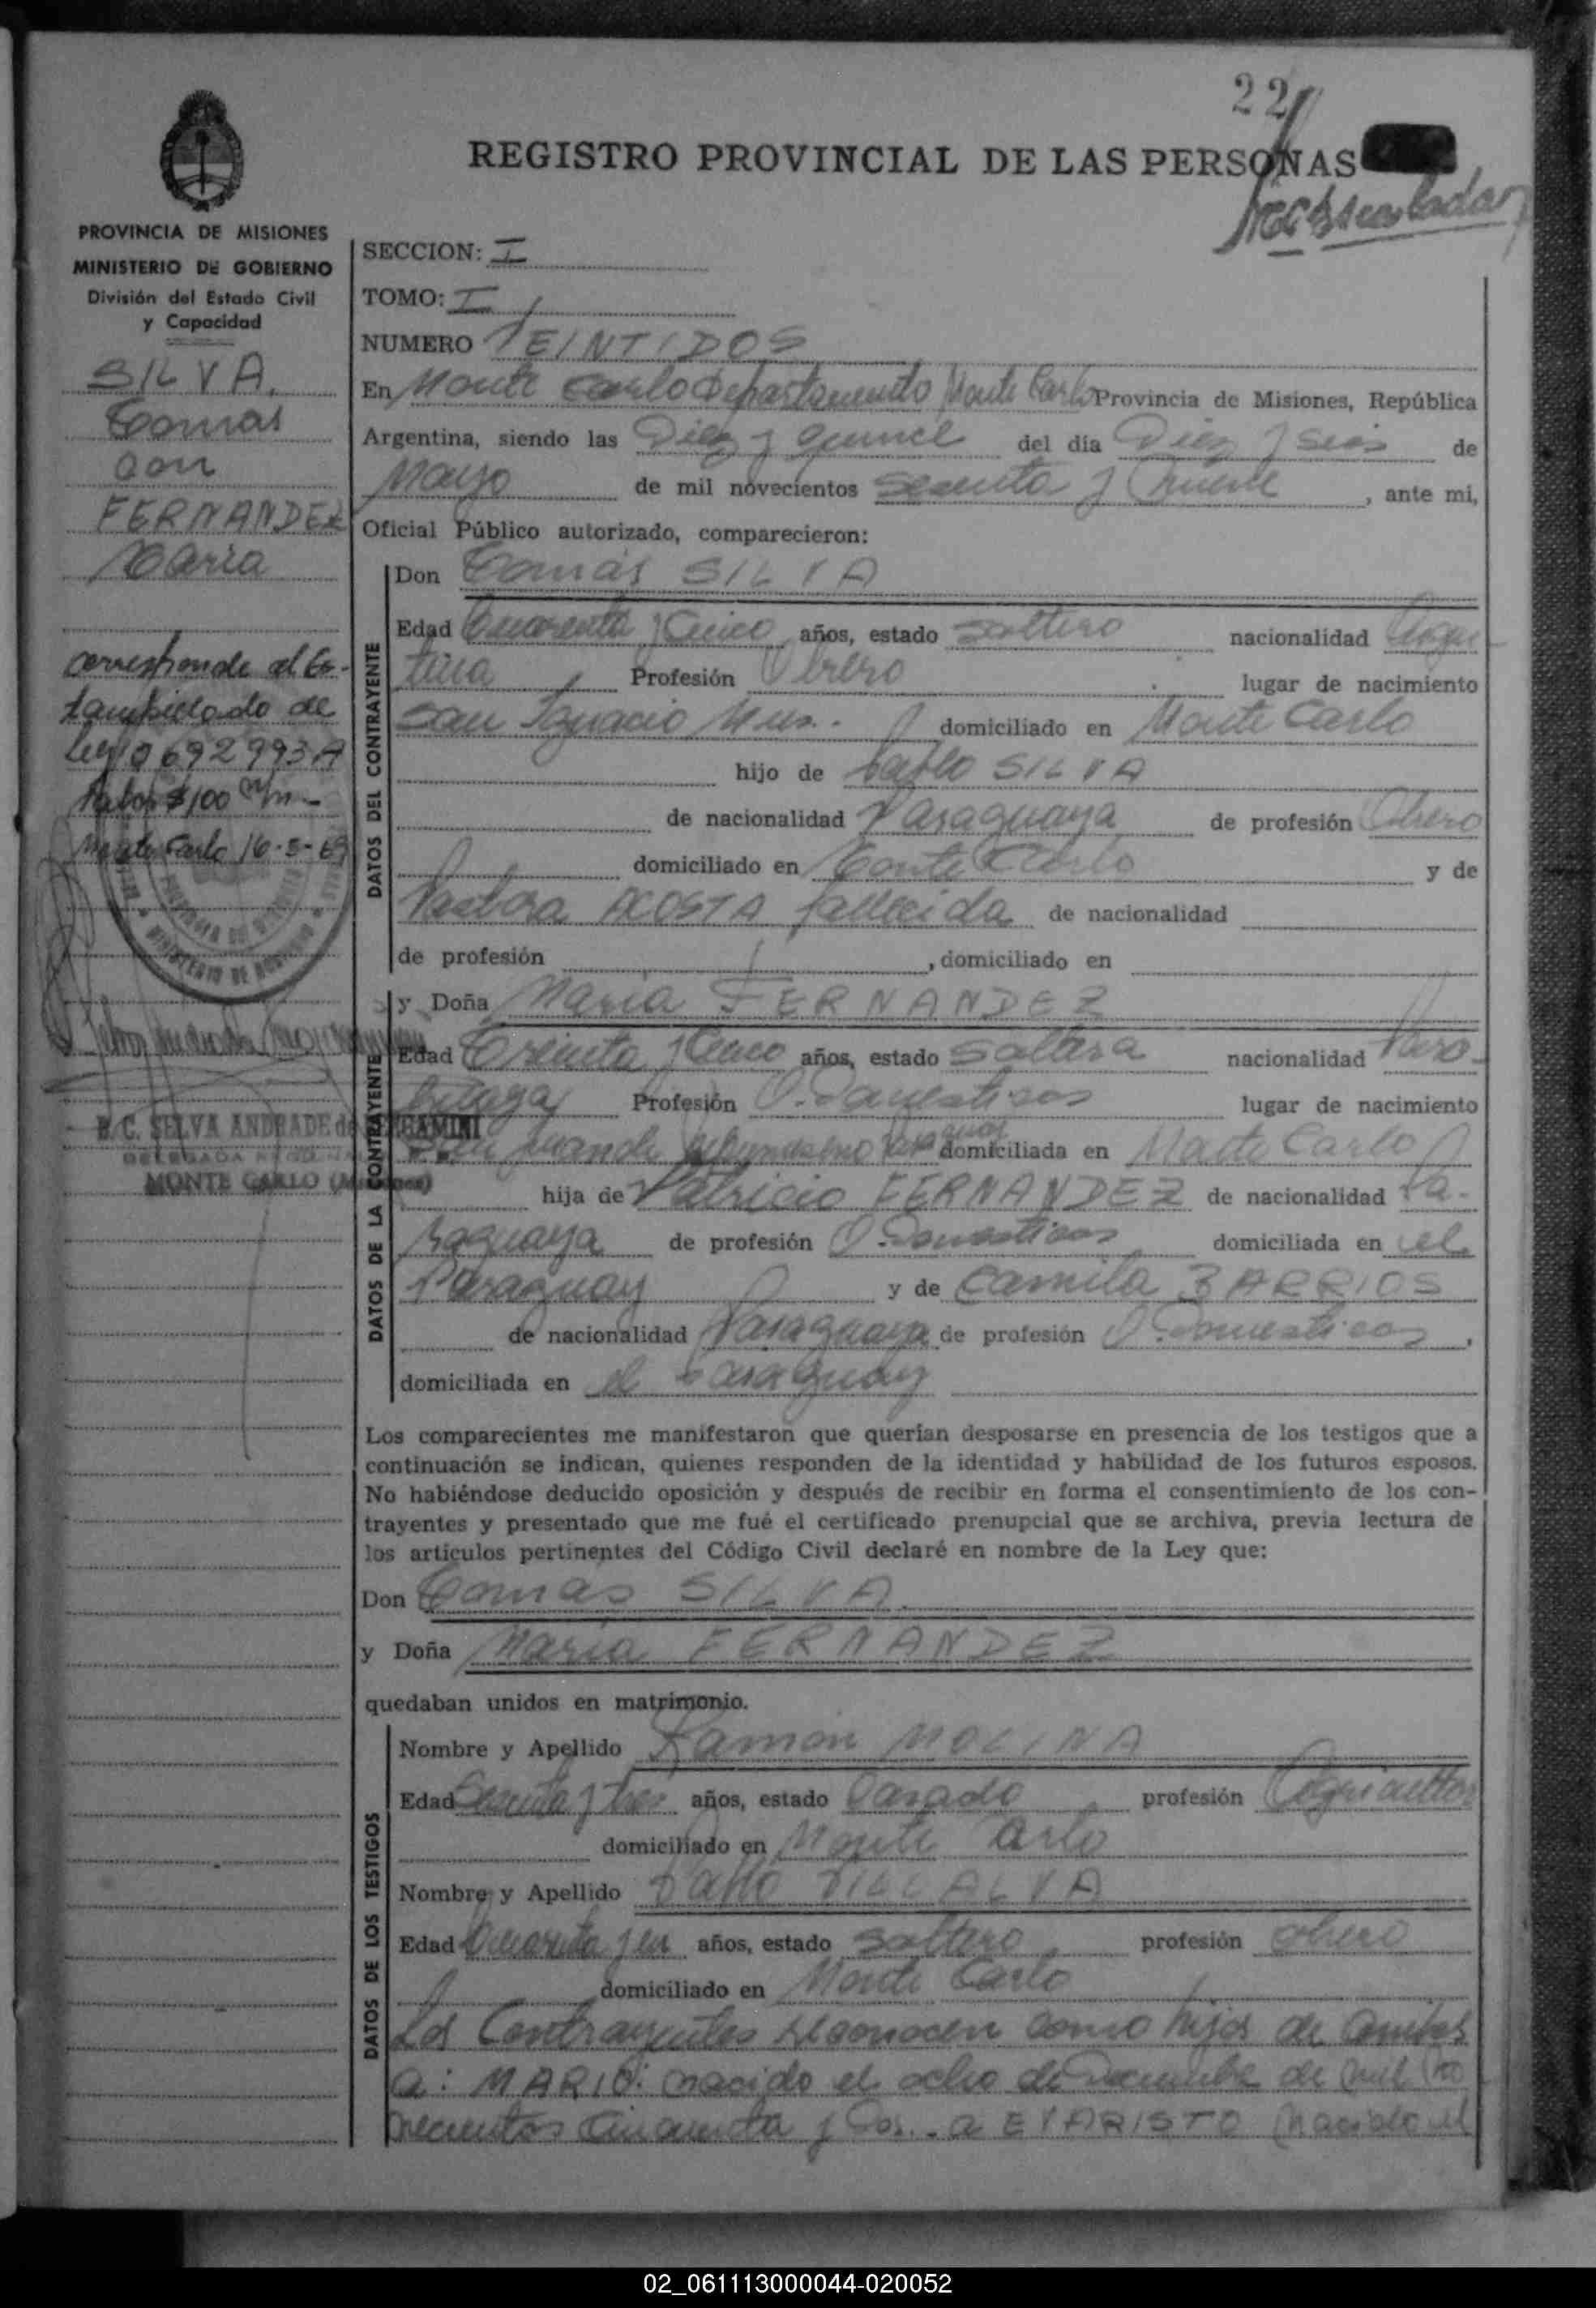 22
REGISTRO PROVINCIAL DE LAS PERSONAS
PROVINCIA DE MISIONES
MINISTERIO DE GOBIERNO
División del Estado Civil
y Capacidad
SILVA,
Tomas
con
FERNANDEZ
Maria
corresponde al Es-
tampillado de
Ley 0692993A
Valor $100 m/n-
Monte Carlo 16-5-69
SELVA ANDRADE de
MONTE CARLO (Misiones)
SECCION: I
TOMO: I
NUMERO VEINTIDOS
En Monte Carlo Departamento Monte Carlo Provincia de Misiones, República
Argentina, siendo las Diez y Quince del día Diez y Seis de
Mayo de mil novecientos Sesenta y Nueve, ante mi,
Oficial Público autorizado, comparecieron:
DATOS DEL CONTRAYENTE
Don Tomás SILVA
Edad Cuarenta y Cinco años, estado soltero nacionalidad Argen
tina Profesión Obrero lugar de nacimiento
San Ignacio Mnes. domiciliado en Monte Carlo
hijo de Pablo SILVA
de nacionalidad Paraguaya de profesión Obrero
domiciliado en Monte Carlo y de
ACOSTA fallecida de nacionalidad
de profesión , domiciliado en
DATOS DE LA CONTRAYENTE
y Doña Maria FERNANDEZ
Edad Treinta y Cinco años, estado Soltera nacionalidad Para-
guaya Profesión Q. Domesticos lugar de nacimiento
domiciliada en Monte Carlo
hija de Patricio FERNANDEZ de nacionalidad Pa-
raguaya de profesión Q. Domesticos domiciliada en el
Paraguay y de Camila BARRIOS
de nacionalidad Paraguaya de profesión Q. Domesticos,
domiciliada en el Paraguay
Los comparecientes me manifestaron que querían desposarse en presencia de los testigos que a
continuación se indican, quienes responden de la identidad y habilidad de los futuros esposos.
No habiéndose deducido oposición y después de recibir en forma el consentimiento de los con-
trayentes y presentado que me fué el certificado prenupcial que se archiva, previa lectura de
los artículos pertinentes del Código Civil declaré en nombre de la Ley que:
Don Tomás SILVA
y Doña Maria FERNANDEZ
quedaban unidos en matrimonio.
DATOS DE LOS TESTIGOS
Nombre y Apellido Ramón MOLINA
Edad Sesenta y tres años, estado Casado profesión Agricultor
domiciliado en Monte Carlo
Nombre y Apellido Pablo VILLALVA
Edad Cuarenta y un años, estado Soltero profesión obrero
domiciliado en Monte Carlo
Los Contrayentes reconocen como hijos de ambos
a: MARIO: nacido el ocho de Diciembre de mil no
vecientos Cincuenta y Dos.- a EVARISTO nacido el
02_061113000044-020052